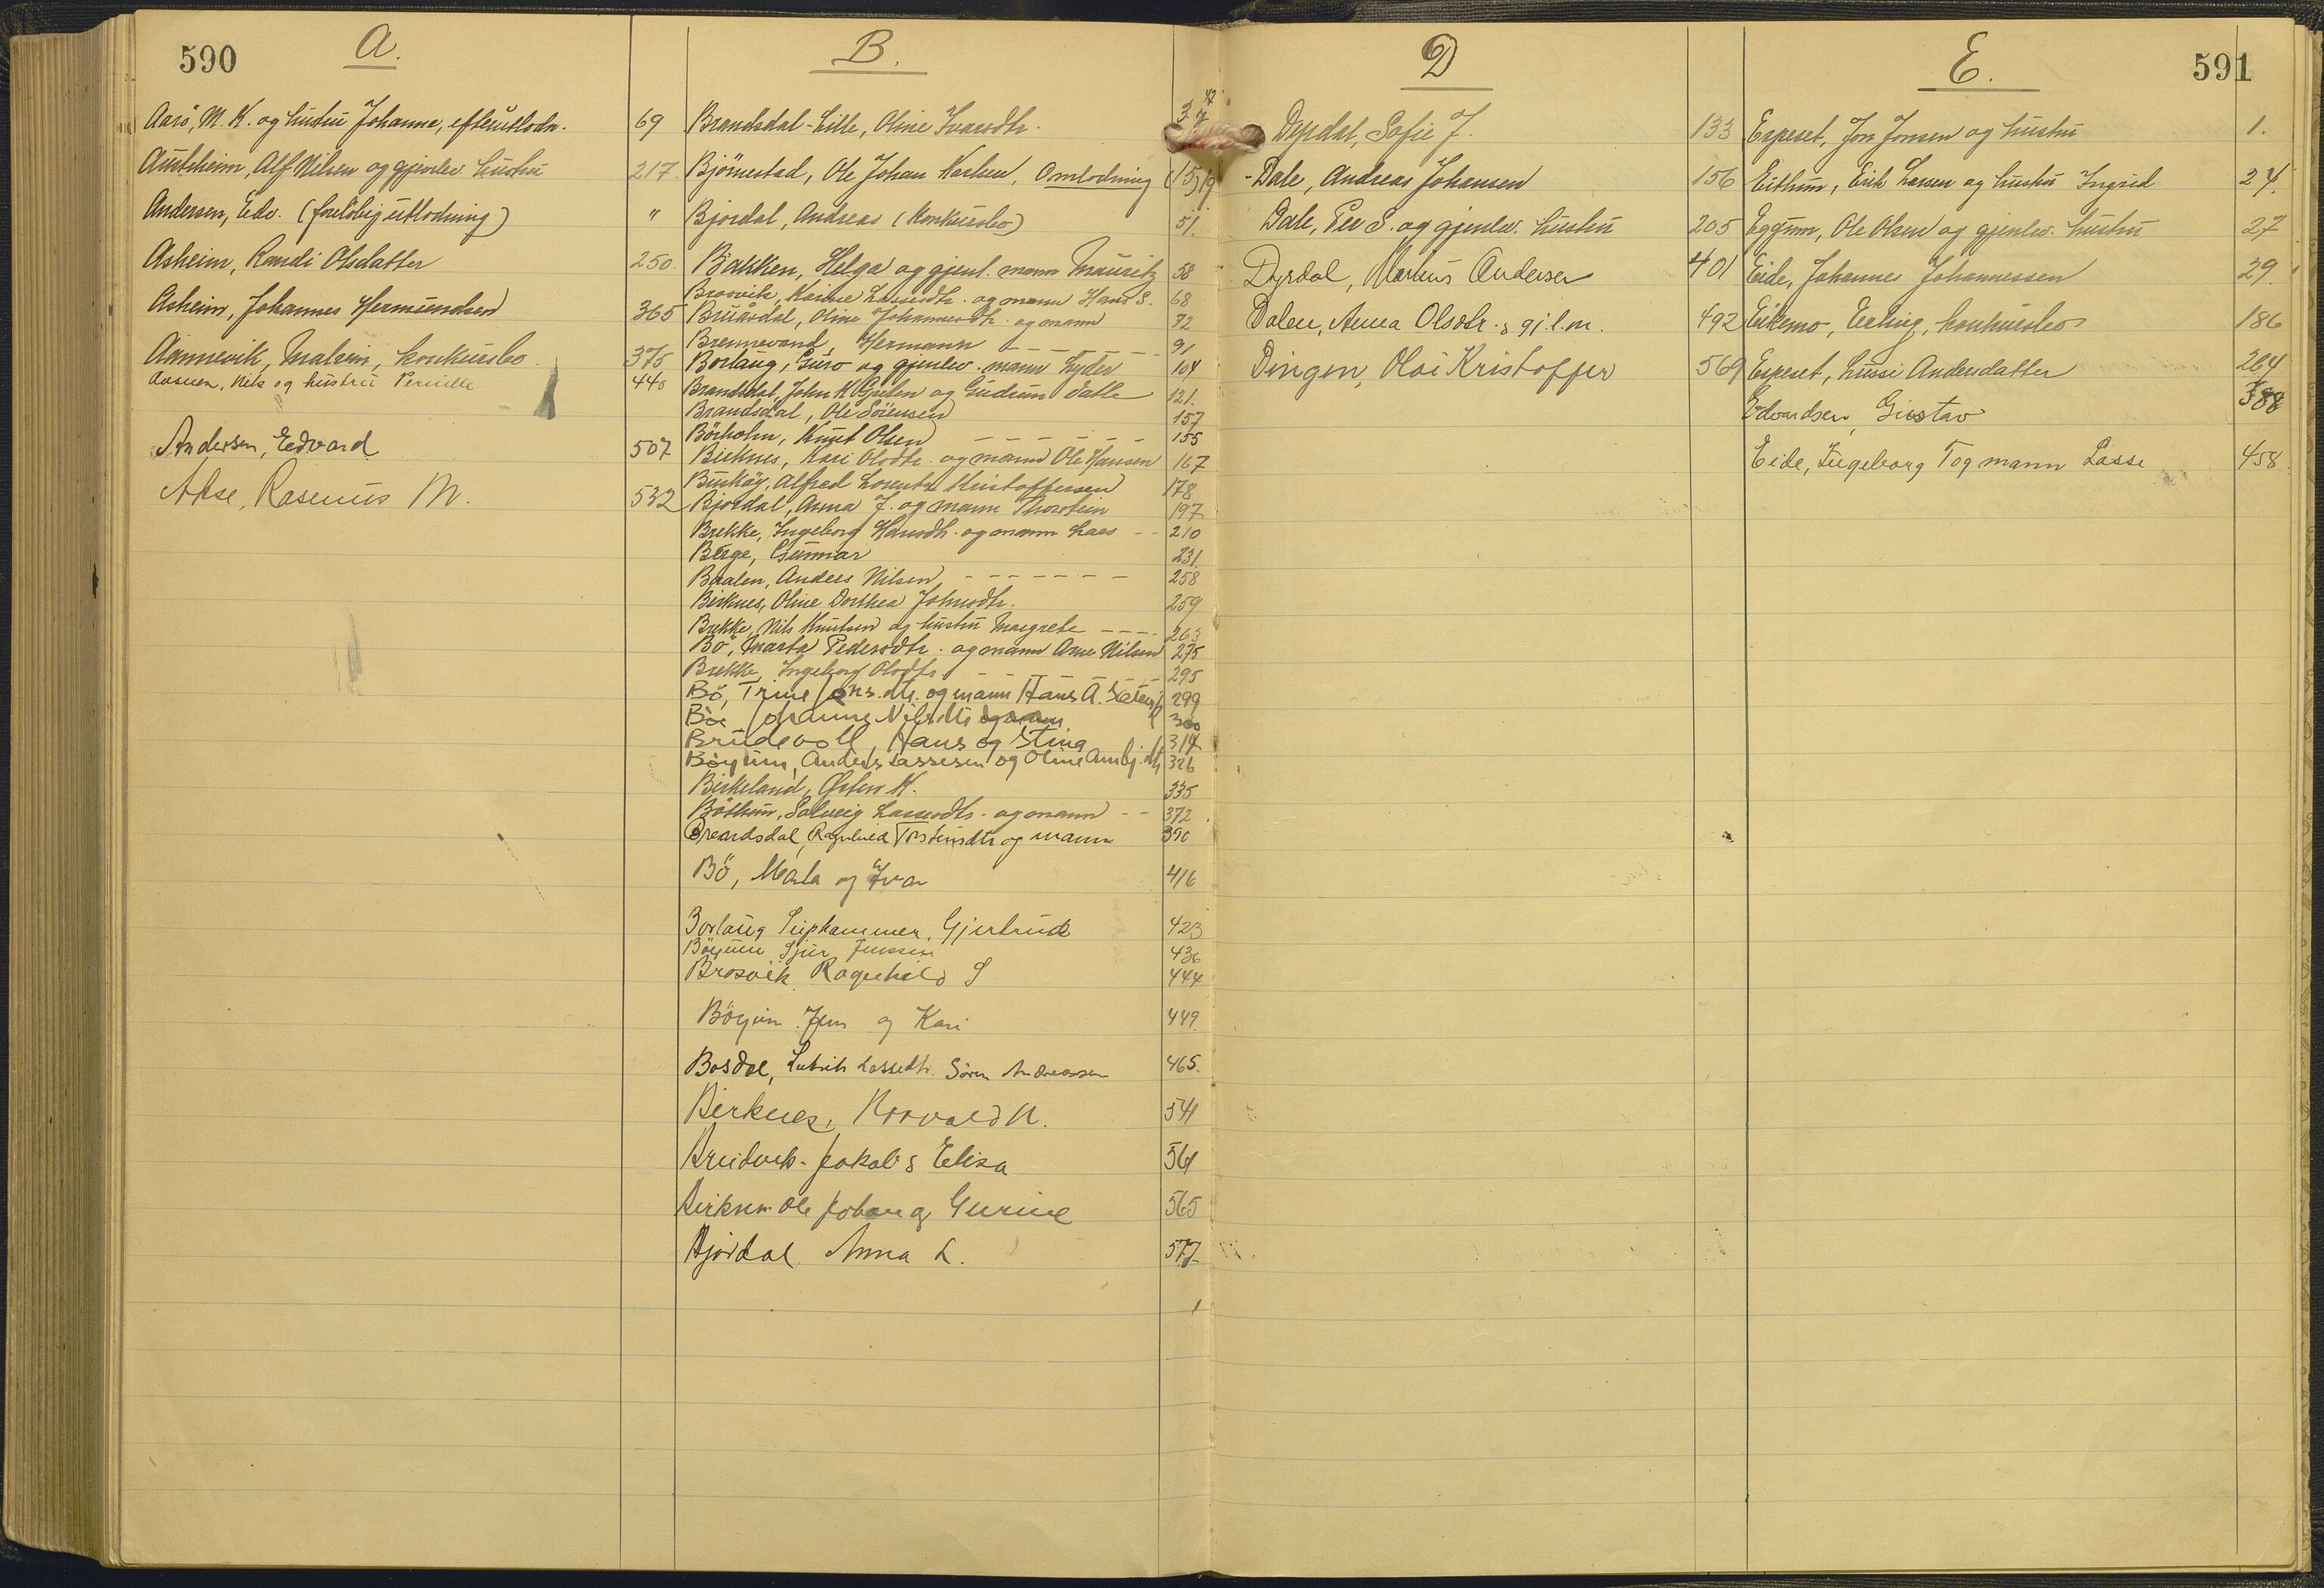 590
A.
Aarö, M. K. og hustru Johanne, efterutlodn. 69
Austrheim, Alf Nilsen og gjenlev. hustru 217.
Andersen, Edv. (foreløbig utlodning) "
Asheim, Randi Olsdatter 250.
Asheim, Johannes Hermundsen 365
Aannevik, Malvin, konkursbo 375
Aasnen, Nils og hustru Pernille 440
Andersen, Edvard 507
Akse, Rasmus M. 532
B.
Brandsdal-Lille, Oline Ivarsdtr. 37 42
Bjørnestad, Ole Johan Karlsen, Omlodning (15) 19
Bjordal, Andreas (Konkursbo) 51.
Bakken, Helga og gjenl. mann Mauritz 58
Brosvik, Karine Lassesdtr. og mann Hans S. 68
Bruårdal, Oline Johannesdtr. og mann 72
Brennevand, Hermann 91
Borlaug, Guro og gjenlev. mann Lyder 104
Brandsdal, John K. Gjelen og Gudrun Datle 121.
Brandsdal, Ole Sörensen 157
Börholm, Knut Olsen 155
Birknes, Kari Olsdtr. og mann Ole Hansen 167
Buskøy, Alfred Lorentz Kristoffersen 178
Bjordal, Anna J. og mann Thorstein 197
Brekke, Ingeborg Hansdtr. og mann Lars 210
Berge, Gunnar 231.
Baalen, Anders Nilsen 258
Birknes, Oline Dorthea Johnsdtr. 259
Brekke, Nils Knutsen og hustru Margrete 263
Bö, Marta Pedersdtr. og mann Arne Nilsen 275
Brekke, Ingeborg Olsdtr. 295
Bö, Trine Jens.dtr. og mann Hans A. 299
Böe Johanne Nilsdtr 300
Brudevoll, Hans og Stina 314
Böyum, Anders Lassesen og Oline Arnbj.dtr 326
Birkeland, Østen K. 335
Böthun, Solveig Lassesdtr. og mann 372
Brandsdal, Ragnhild Torsteinsdtr og mann 390
Bö, Marta og Ivar 416
Borlaug Siphammer, Gjertrud 423
Böyum Sjur Jenssen 436
Brosvik Ragnhild S 444
Böyum Jens og Kari 449
Bosdal, Lassedtr. Sören Andreassen 465.
Birknes, Norvald N. 541
Breidvik Jakob & Elisa 561
Birknes Ole Johan og Gurine 565
Bjordal Anna L. 577
D
Depdal, Sofie J. 133
Dale, Andreas Johansen 156
Dale, Per S. og gjenlev. hustru 205
Dyrdal, Markus Andersen 401
Dalen, Anna Olsdtr. & gj.l.m. 492
Dingen, Olai Kristoffer 569
591
E.
Espeset, Jon Jonsen og hustru 1.
Eithun, Erik Lassen og hustru Ingrid 24.
Eggum, Ole Olsen og gjenlev. hustru 27
Eide, Johannes Johannessen 29.
Eikemo, Erling, konkursbo 186
Espeset, Lussi Andersdatter 264
Edvardsen, Gustav 388
Eide, Ingeborg T og mann Lasse 458